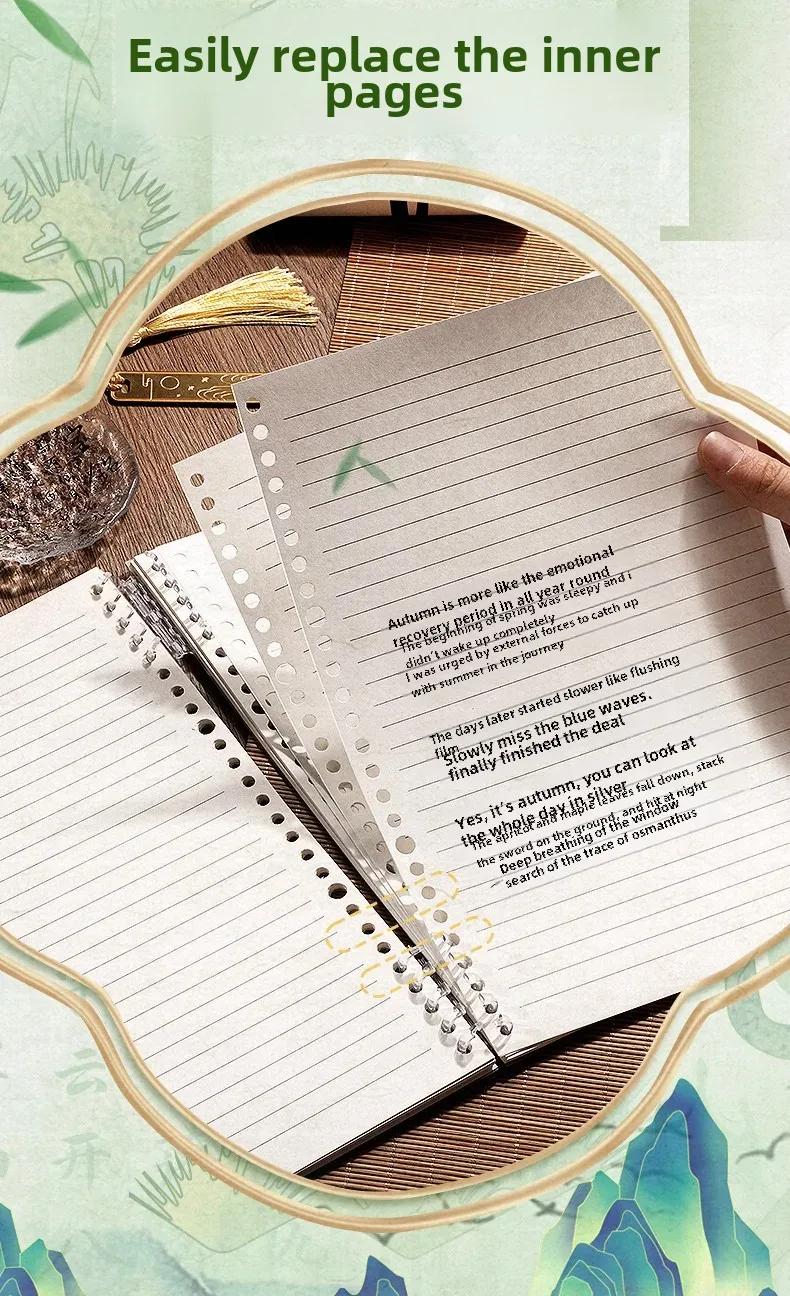 Easily replace the inner
pages
Autumn is more like the emotional
recovery period in all year round
The beginning of spring was sleepy and i
didn't wake up completely
I was urged by external forces to catch up
with summer in the journey
The days later started slower like flushing
film
Slowly miss the blue waves.
finally finished the deal
Yes, it's autumn, you can look at
the whole day in silver
The apricot and maple leaves fall down, stack
the sword on the ground, and hit at night
Deep breathing of the window
search of the trace of osmanthus
云
开